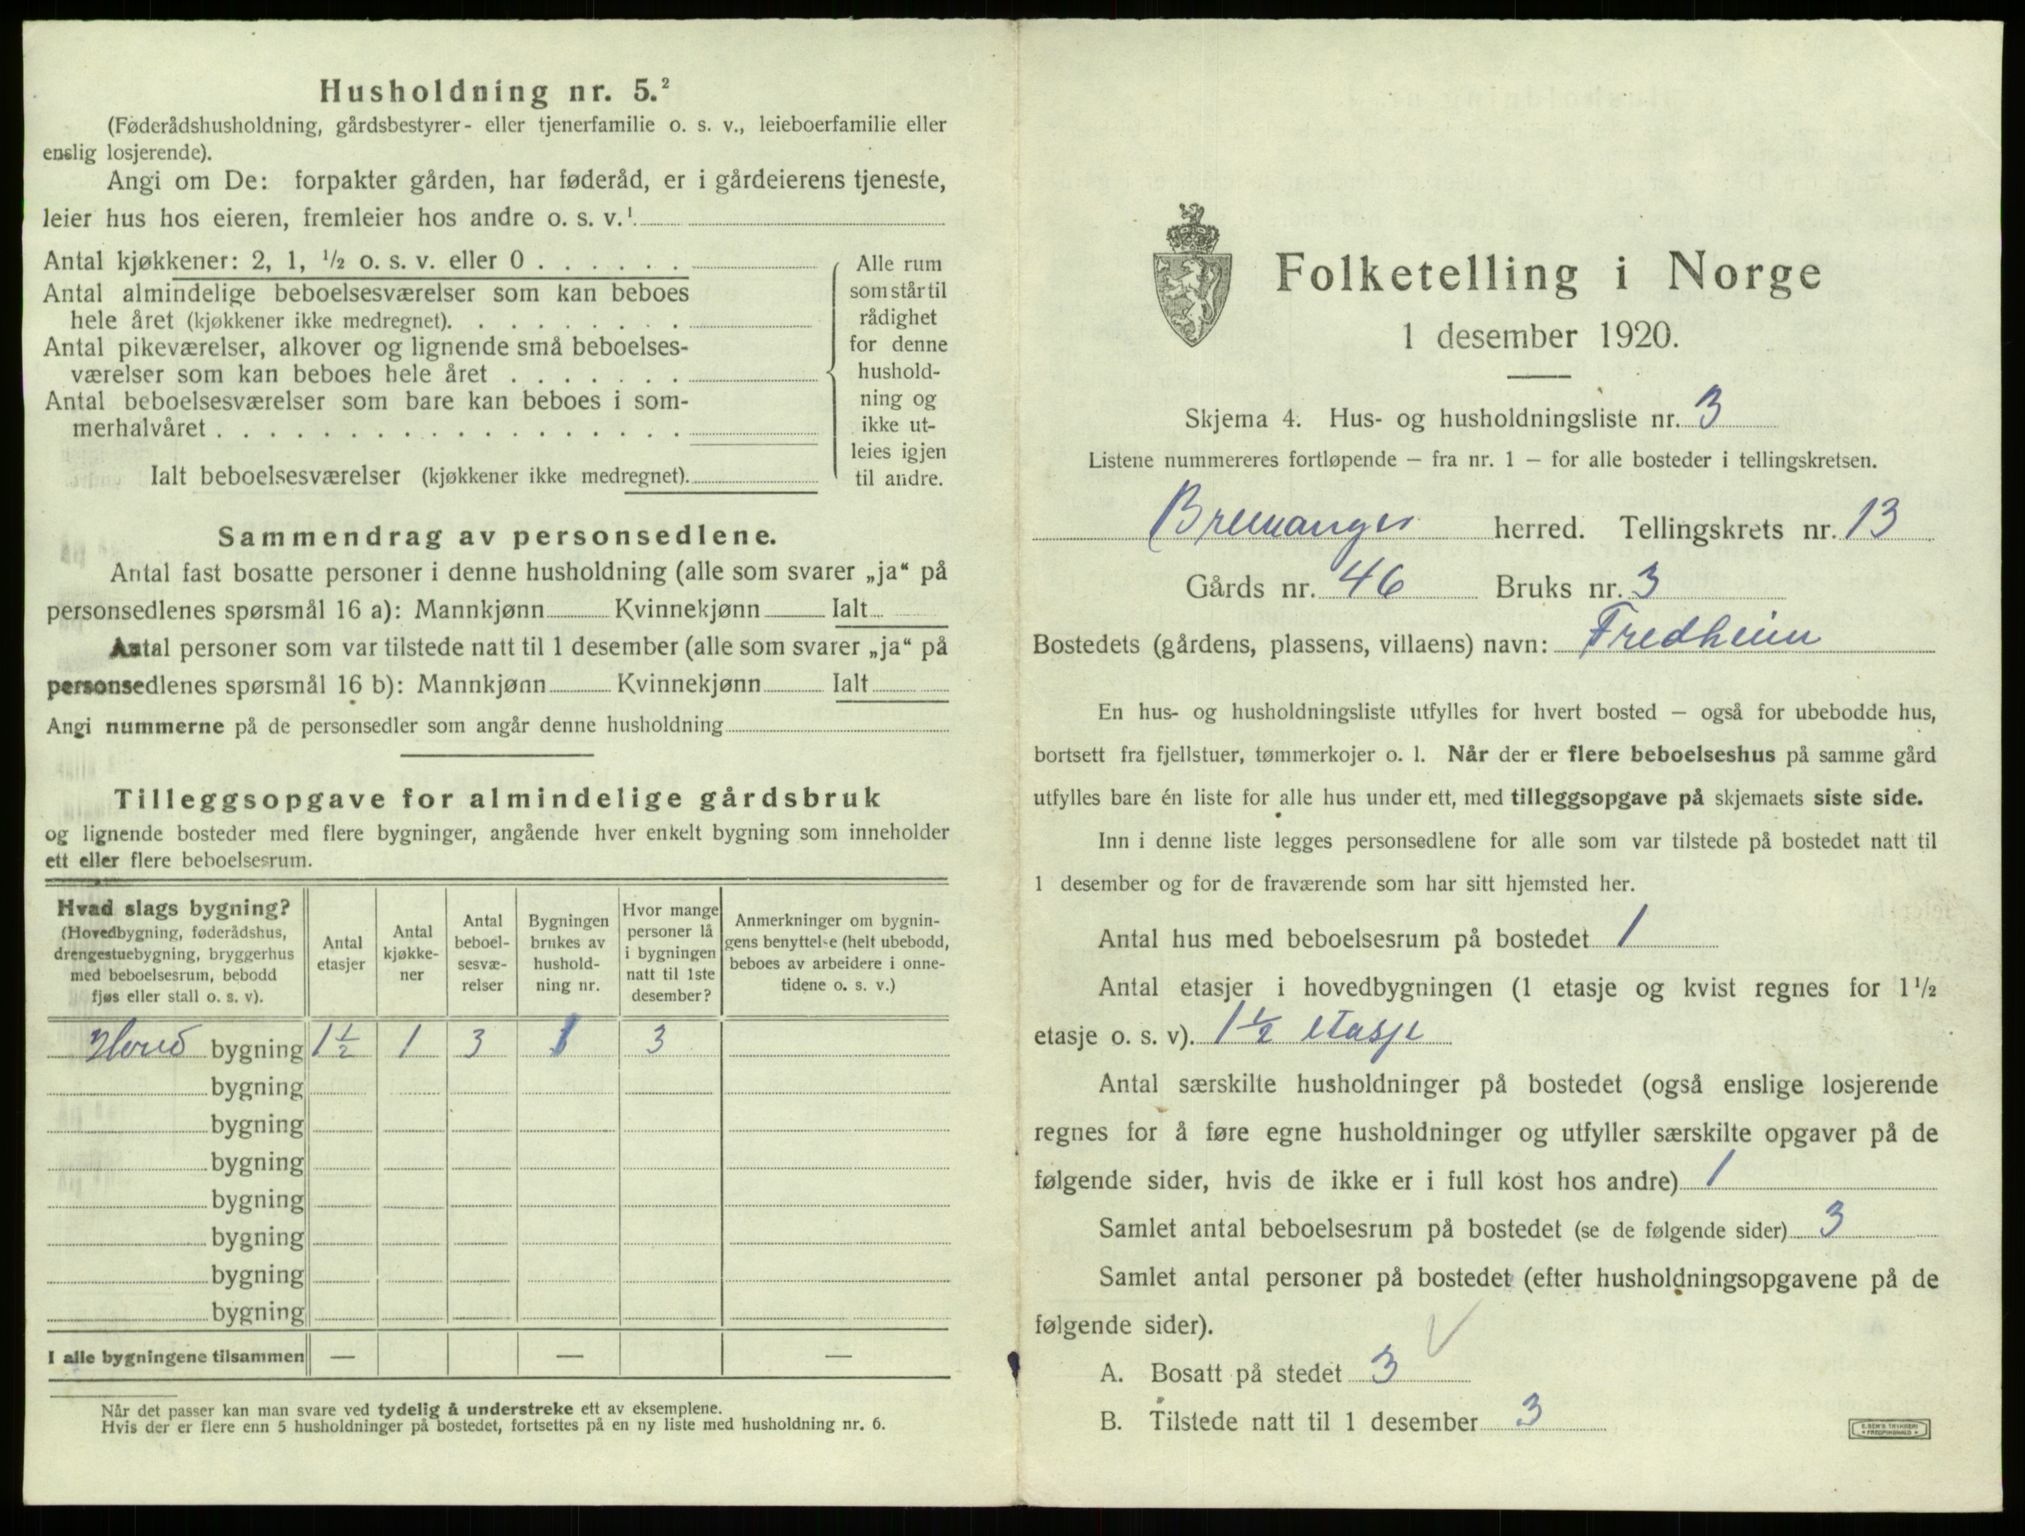 Husholdning nr. 5.²
(Føderådshusholdning, gårdsbestyrer- eller tjenerfamilie o. s. v., leieboerfamilie eller
enslig losjerende).
Angi om De: forpakter gården, har føderåd, er i gårdeierens tjeneste,
leier hus hos eieren, fremleier hos andre o. s. v.¹
Antal kjøkkener: 2, 1, ½ o. s. v. eller 0 . . . . . .
Antal almindelige beboelsesværelser som kan beboes
hele året (kjøkkener ikke medregnet). . . . . . . . .
Antal pikeværelser, alkover og lignende små beboelses-
værelser som kan beboes hele året . . . . . . .
Antal beboelsesværelser som bare kan beboes i som-
merhalvåret . . . . . . . . . . . . . . . . . .
Ialt beboelsesværelser (kjøkkener ikke medregnet).
Alle rum
som står til
rådighet
for denne
hushold-
ning og
ikke ut-
leies igjen
til andre.
Sammendrag av personsedlene.
Antal fast bosatte personer i denne husholdning (alle som svarer „ja“ på
personsedlenes spørsmål 16 a): Mannkjønn Kvinnekjønn Ialt
Antal personer som var tilstede natt til 1 desember (alle som svarer „ja“ på
personsedlenes spørsmål 16 b): Mannkjønn Kvinnekjønn Ialt
Angi nummerne på de personsedler som angår denne husholdning
Tilleggsopgave for almindelige gårdsbruk
og lignende bosteder med flere bygninger, angående hver enkelt bygning som inneholder
ett eller flere beboelsesrum.
Hvad slags bygning?
(Hovedbygning, føderådshus,
drengestuebygning, bryggerhus
med beboelsesrum, bebodd
fjøs eller stall o. s. v).
Antal
etasjer
Antal
kjøkke-
ner
Antal
beboel-
sesvæ-
relser
Bygningen
brukes av
hushold-
ning nr.
Hvor mange
personer lå
i bygningen
natt til 1ste
desember?
Anmerkninger om bygnin-
gens benyttelse (helt ubebodd,
beboes av arbeidere i onne-
tidene o. s. v.)
Hoved bygning 1½ 1 3 1 3
bygning
bygning
bygning
bygning
bygning
bygning
bygning
I alle bygningene tilsammen — — —
Når det passer kan man svare ved tydelig å understreke ett av eksemplene.
Hvis der er flere enn 5 husholdninger på bostedet, fortsettes på en ny liste med husholdning nr. 6.
Folketelling i Norge
1 desember 1920.
Skjema 4. Hus- og husholdningsliste nr. 3
Listene nummereres fortløpende — fra nr. 1 — for alle bosteder i tellingskretsen.
Bremanger herred. Tellingskrets nr. 13
Gårds nr. 46 Bruks nr. 3
Bostedets (gårdens, plassens, villaens) navn: Fredheim
En hus- og husholdningsliste utfylles for hvert bosted — også for ubebodde hus,
bortsett fra fjellstuer, tømmerkojer o. l. Når der er flere beboelseshus på samme gård
utfylles bare én liste for alle hus under ett, med tilleggsopgave på skjemaets siste side.
Inn i denne liste legges personsedlene for alle som var tilstede på bostedet natt til
1 desember og for de fraværende som har sitt hjemsted her.
Antal hus med beboelsesrum på bostedet 1
Antal etasjer i hovedbygningen (1 etasje og kvist regnes for 1½
etasje o. s. v). 1½ etasje
Antal særskilte husholdninger på bostedet (også enslige losjerende
regnes for å føre egne husholdninger og utfyller særskilte opgaver på de
følgende sider, hvis de ikke er i full kost hos andre) 1
Samlet antal beboelsesrum på bostedet (se de følgende sider) 3
Samlet antal personer på bostedet (efter husholdningsopgavene på de
følgende sider).
A. Bosatt på stedet 3
B. Tilstede natt til 1 desember 3